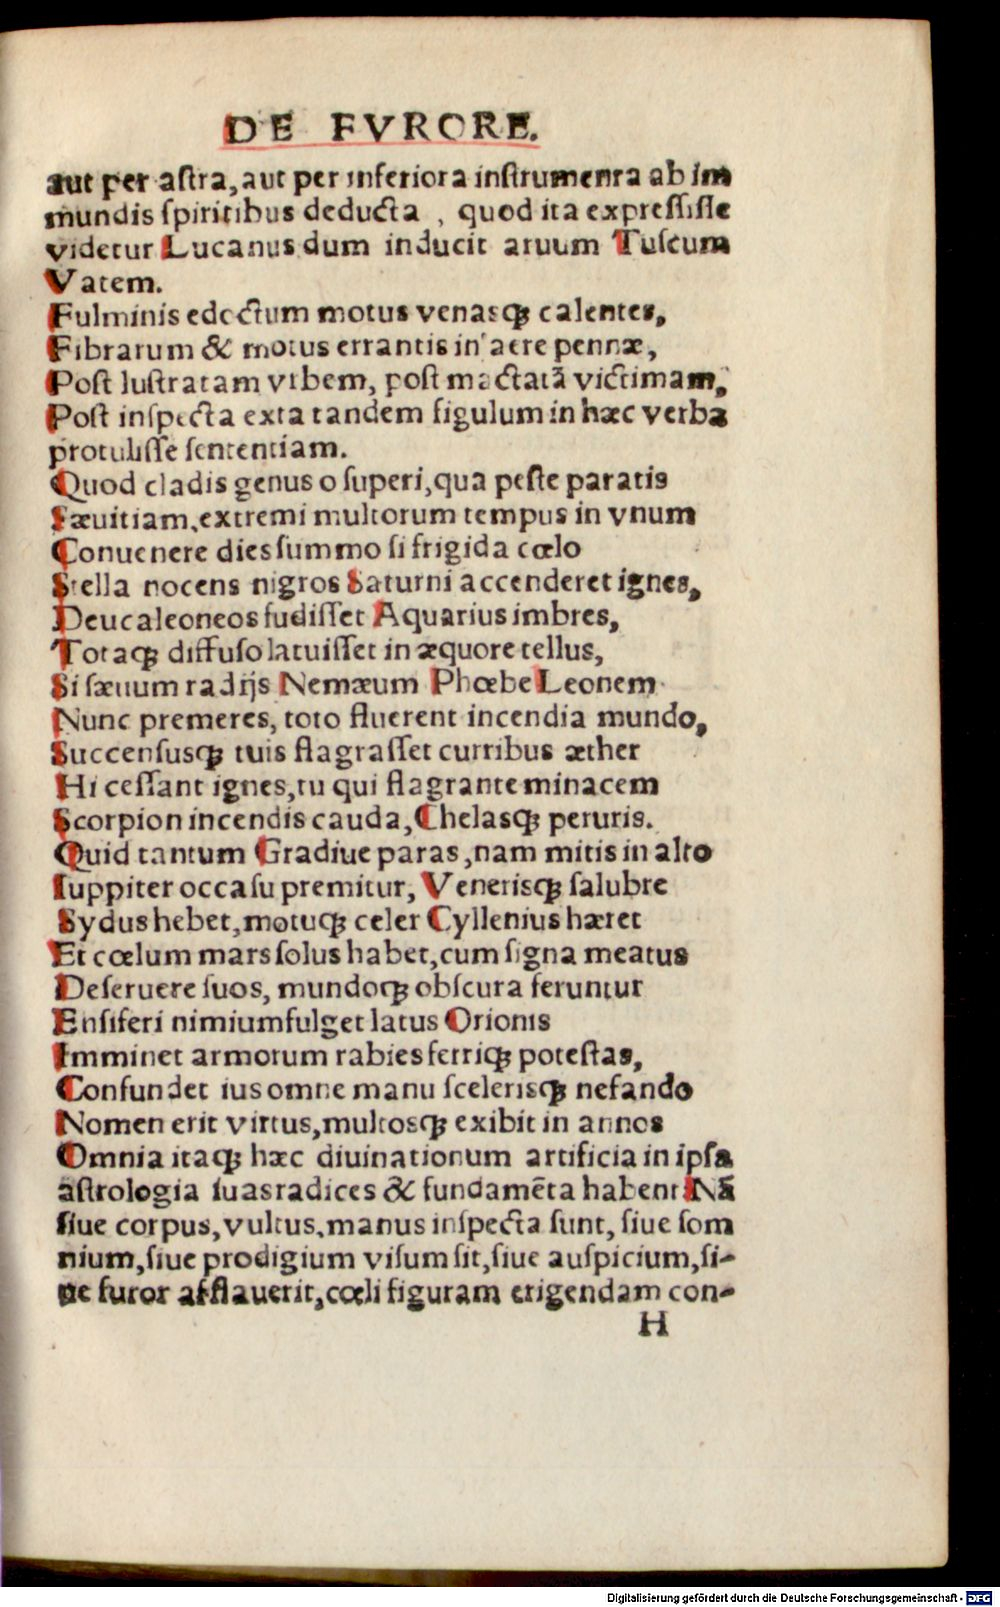 DE FVRORE.
aut per astra, aut per inferiora instrumenra ab im
mundis spiritibus deducta , quod ita expressisse
videtur Lucanus dum inducit aruum Tuscum
Vatem.
Fulminis edoctum motus venasq; calentes,
Fibrarum & motus errantis in aere pennæ,
Post lustratam vrbem, post mactatã victimam,
Post inspecta exta tandem figulum in hæc verba
protulisse sententiam.
Quod cladis genus o superi, qua peste paratis
Sæuitiam, extremi multorum tempus in vnum
Conuenere dies summo si frigida cœlo
Stella nocens nigros Saturni accenderet ignes,
Deucaleoneos fudisset Aquarius imbres,
Totaq; diffuso latuisset in æquore tellus,
Si sæuum radijs Nemæum Phœbe Leonem
Nunc premeres, toto fluerent incendia mundo,
Succensusq; tuis flagrasset curribus æther
Hi cessant ignes, tu qui flagrante minacem
Scorpion incendis cauda, Chelasq; peruris.
Quid tantum Gradiue paras, nam mitis in alto
Iuppiter occasu premitur, Venerisq; salubre
Sydus hebet, motuq; celer Cyllenius hæret
Et cœlum mars solus habet, cum signa meatus
Deseruere suos, mundoq; obscura feruntur
Ensiferi nimium fulget latus Orionis
Imminet armorum rabies ferriq; potestas,
Confundet ius omne manu scelerisq; nefando
Nomen erit virtus, multosq; exibit in annos
Omnia itaq; hæc diuinationum artificia in ipsa
astrologia suas radices & fundamẽta habent Nã
siue corpus, vultus, manus inspecta sunt, siue som
nium, siue prodigium visum sit, siue auspicium, si-
ue furor afflauerit, cœli figuram erigendam con-
H
Digitalisierung gefördert durch die Deutsche Forschungsgemeinschaft - DFG